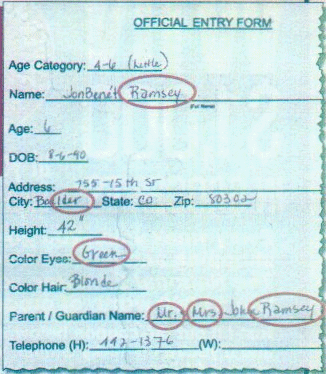 OFFICIAL ENTRY FORM
Age Category: 4-6 (Little)
Name: JonBenét Ramsey
(Full Name)
Age: 6
DOB: 8-6-90
Address: 755-15th St
City: Boulder State: CO Zip: 80302
Height: 42"
Color Eyes: Green
Color Hair: Blonde
Parent / Guardian Name: Mr. Mrs John Ramsey
Telephone (H): 442-1376 (W):